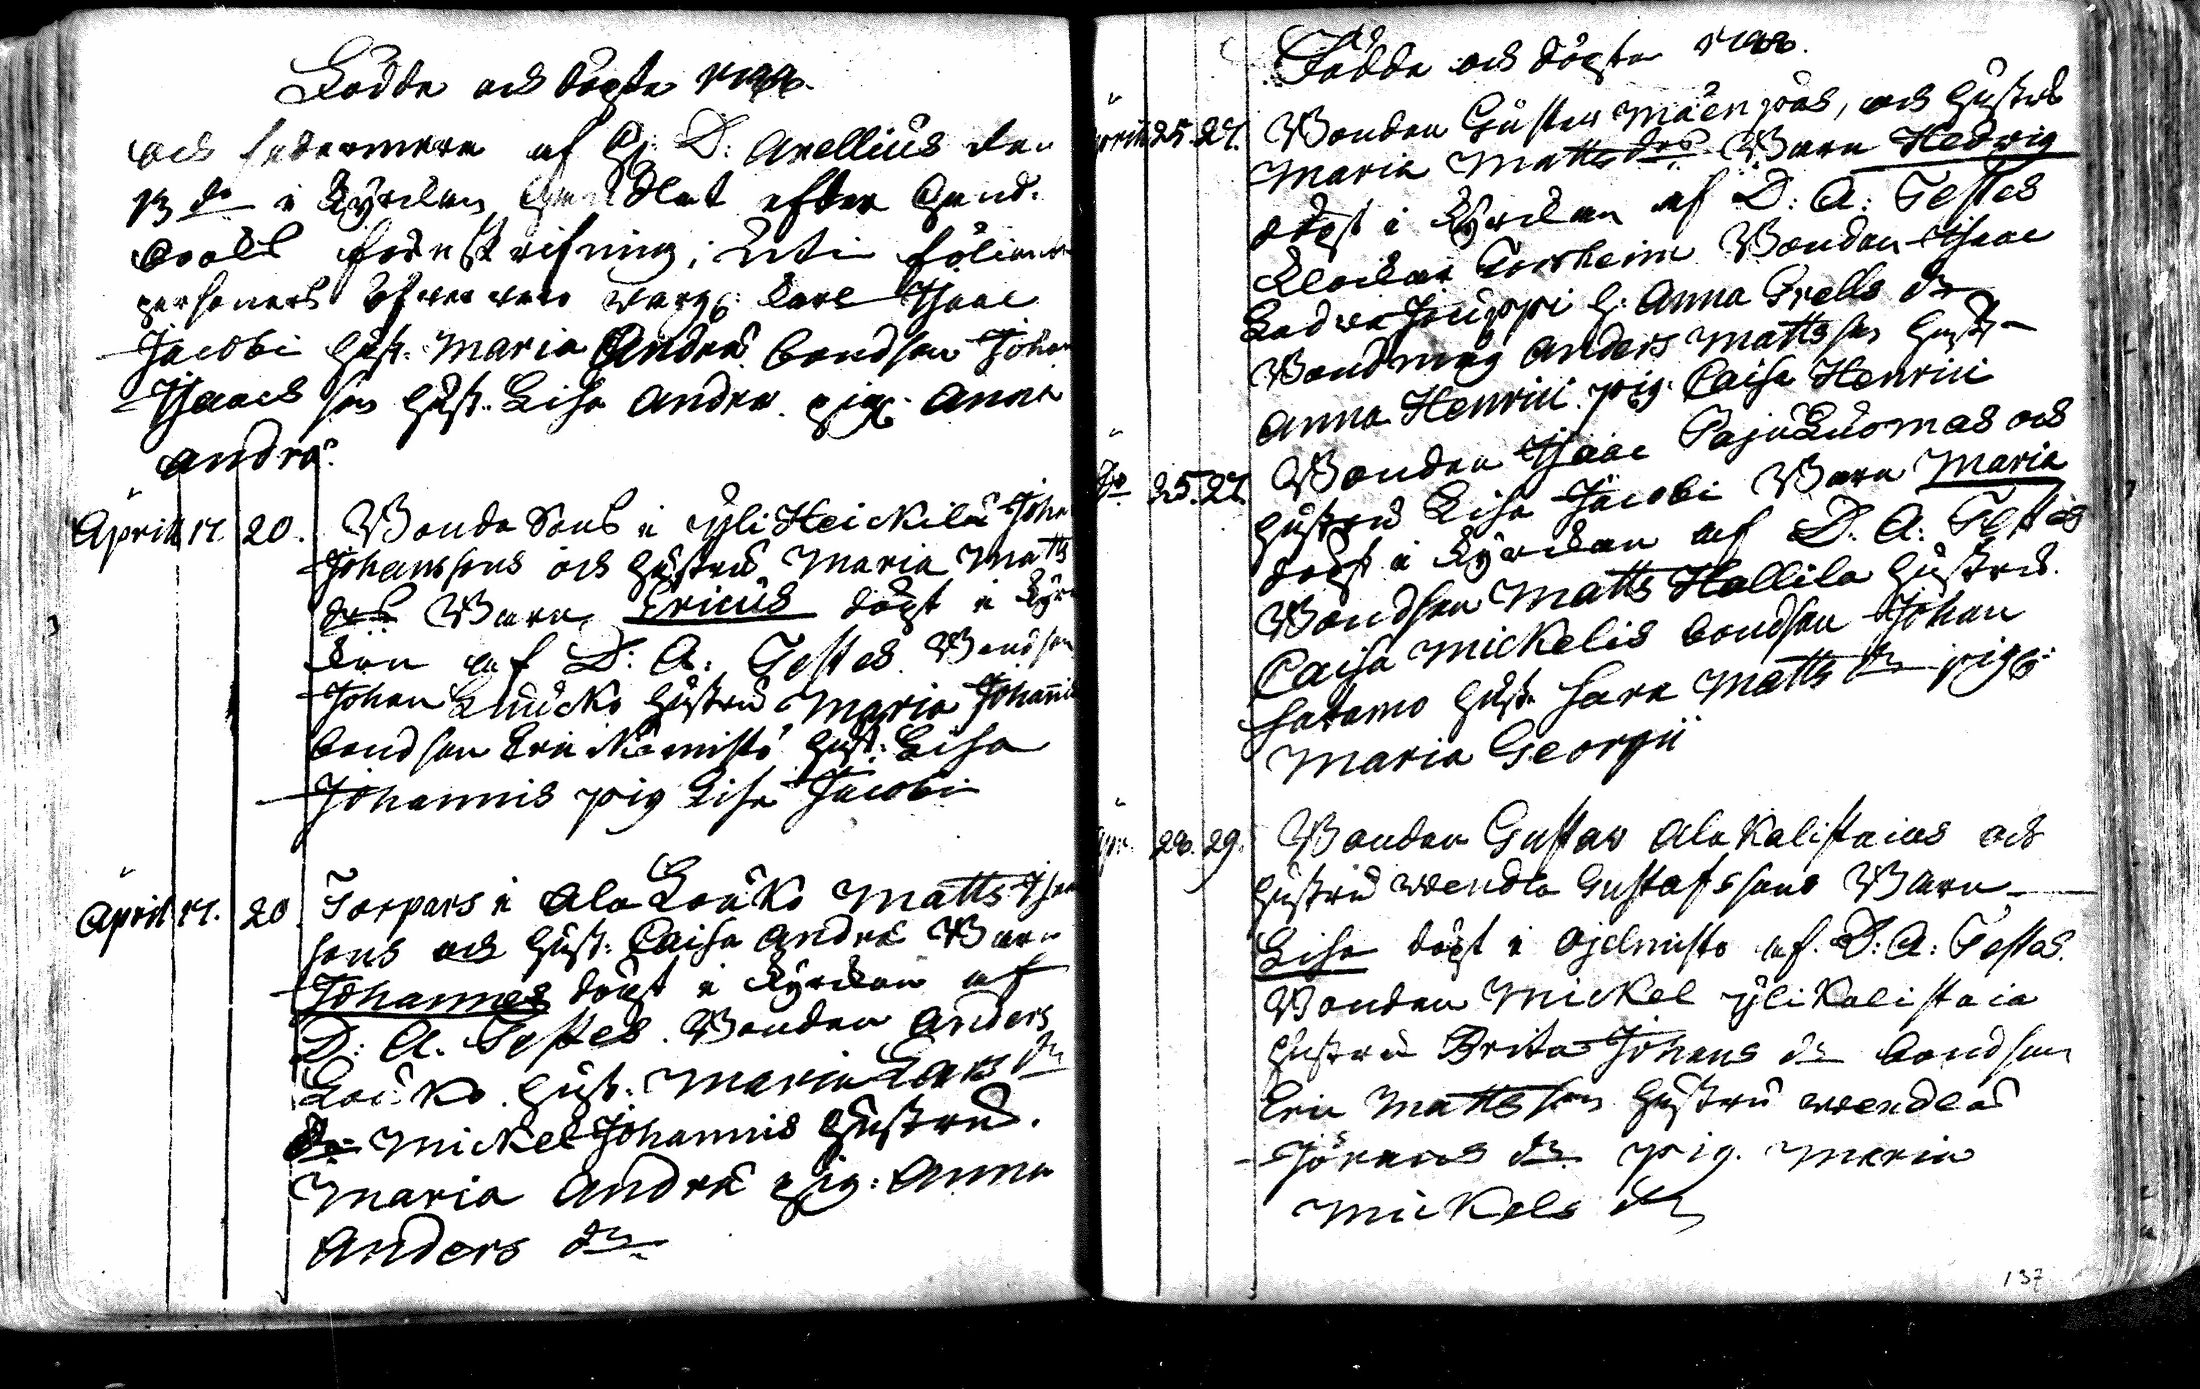 Födde och döpte
och sedermera af D: Arellius den
13 de i Kyrckan efter hand-
föreskrifning; uti
personers öfwerwaro Karl Isaac
Jacobi hust: Maria Andræ bondson Johan
Isaacs son hust: Lisa Andræ pig: Anna
Andræ.
April 17. 20. Bonde Sons i Yli Heickilä Joha
Johanssons och hustrus Maria Matts
drs Barn Ericus döpt i Kyr
kan af D: A: Testes Bondson
Johan hustru Maria Johannis
bondson Eric Niemistö hust: Lisa
Johannis pig Lisa Jacobi
April 17. 20 Torpars i Ala Louko Matts Isac
sons och hust: Caisa Andræ Barn
Johannes döpt i Kyrckan af
D: A. Testes. Bonden Anders
Louko hust: Maria Lars dr
do Mickel Johannis hustru.
Maria Andræ pig: Anna
Anders dr
Födde och döpte
April 25. 27. Bonden Gustaw Mäenpääs, och hustrus
Maria Matts drs Barn Hedwig
döpt i Kyrckan af D: A: Testes
Klockar Forsheim Bonden Isaac
Jouppi h: Anna Prells dr
Bondmåg Anders Matts son hust
Anna Henrici pig: Caisa Henrici
do 25. 27. Bonden Isaac Pajuluomas och
hustrus Lisa Jacobi Barn Maria
döpt i Kyrckan af D. A: Testes
Bondson Matts Hallila hustru
Caisa Mickelis bondson Johan
Satamo hust: Sara Matts dr pig:
Maria Georgii
Apr. 28. 29. Bonden Gustav Ala Kalistaias och
hustrus Wendla Gustafssons Barn
Lisa döpt i Ojelmisto af D: A: Testes.
Bonden Mickel Yli Kalistaia
hustru Brita Johans dr bondson
Eric Matts son hustru Wendla
Jörans dr pig. Maria
Mickels dr
137